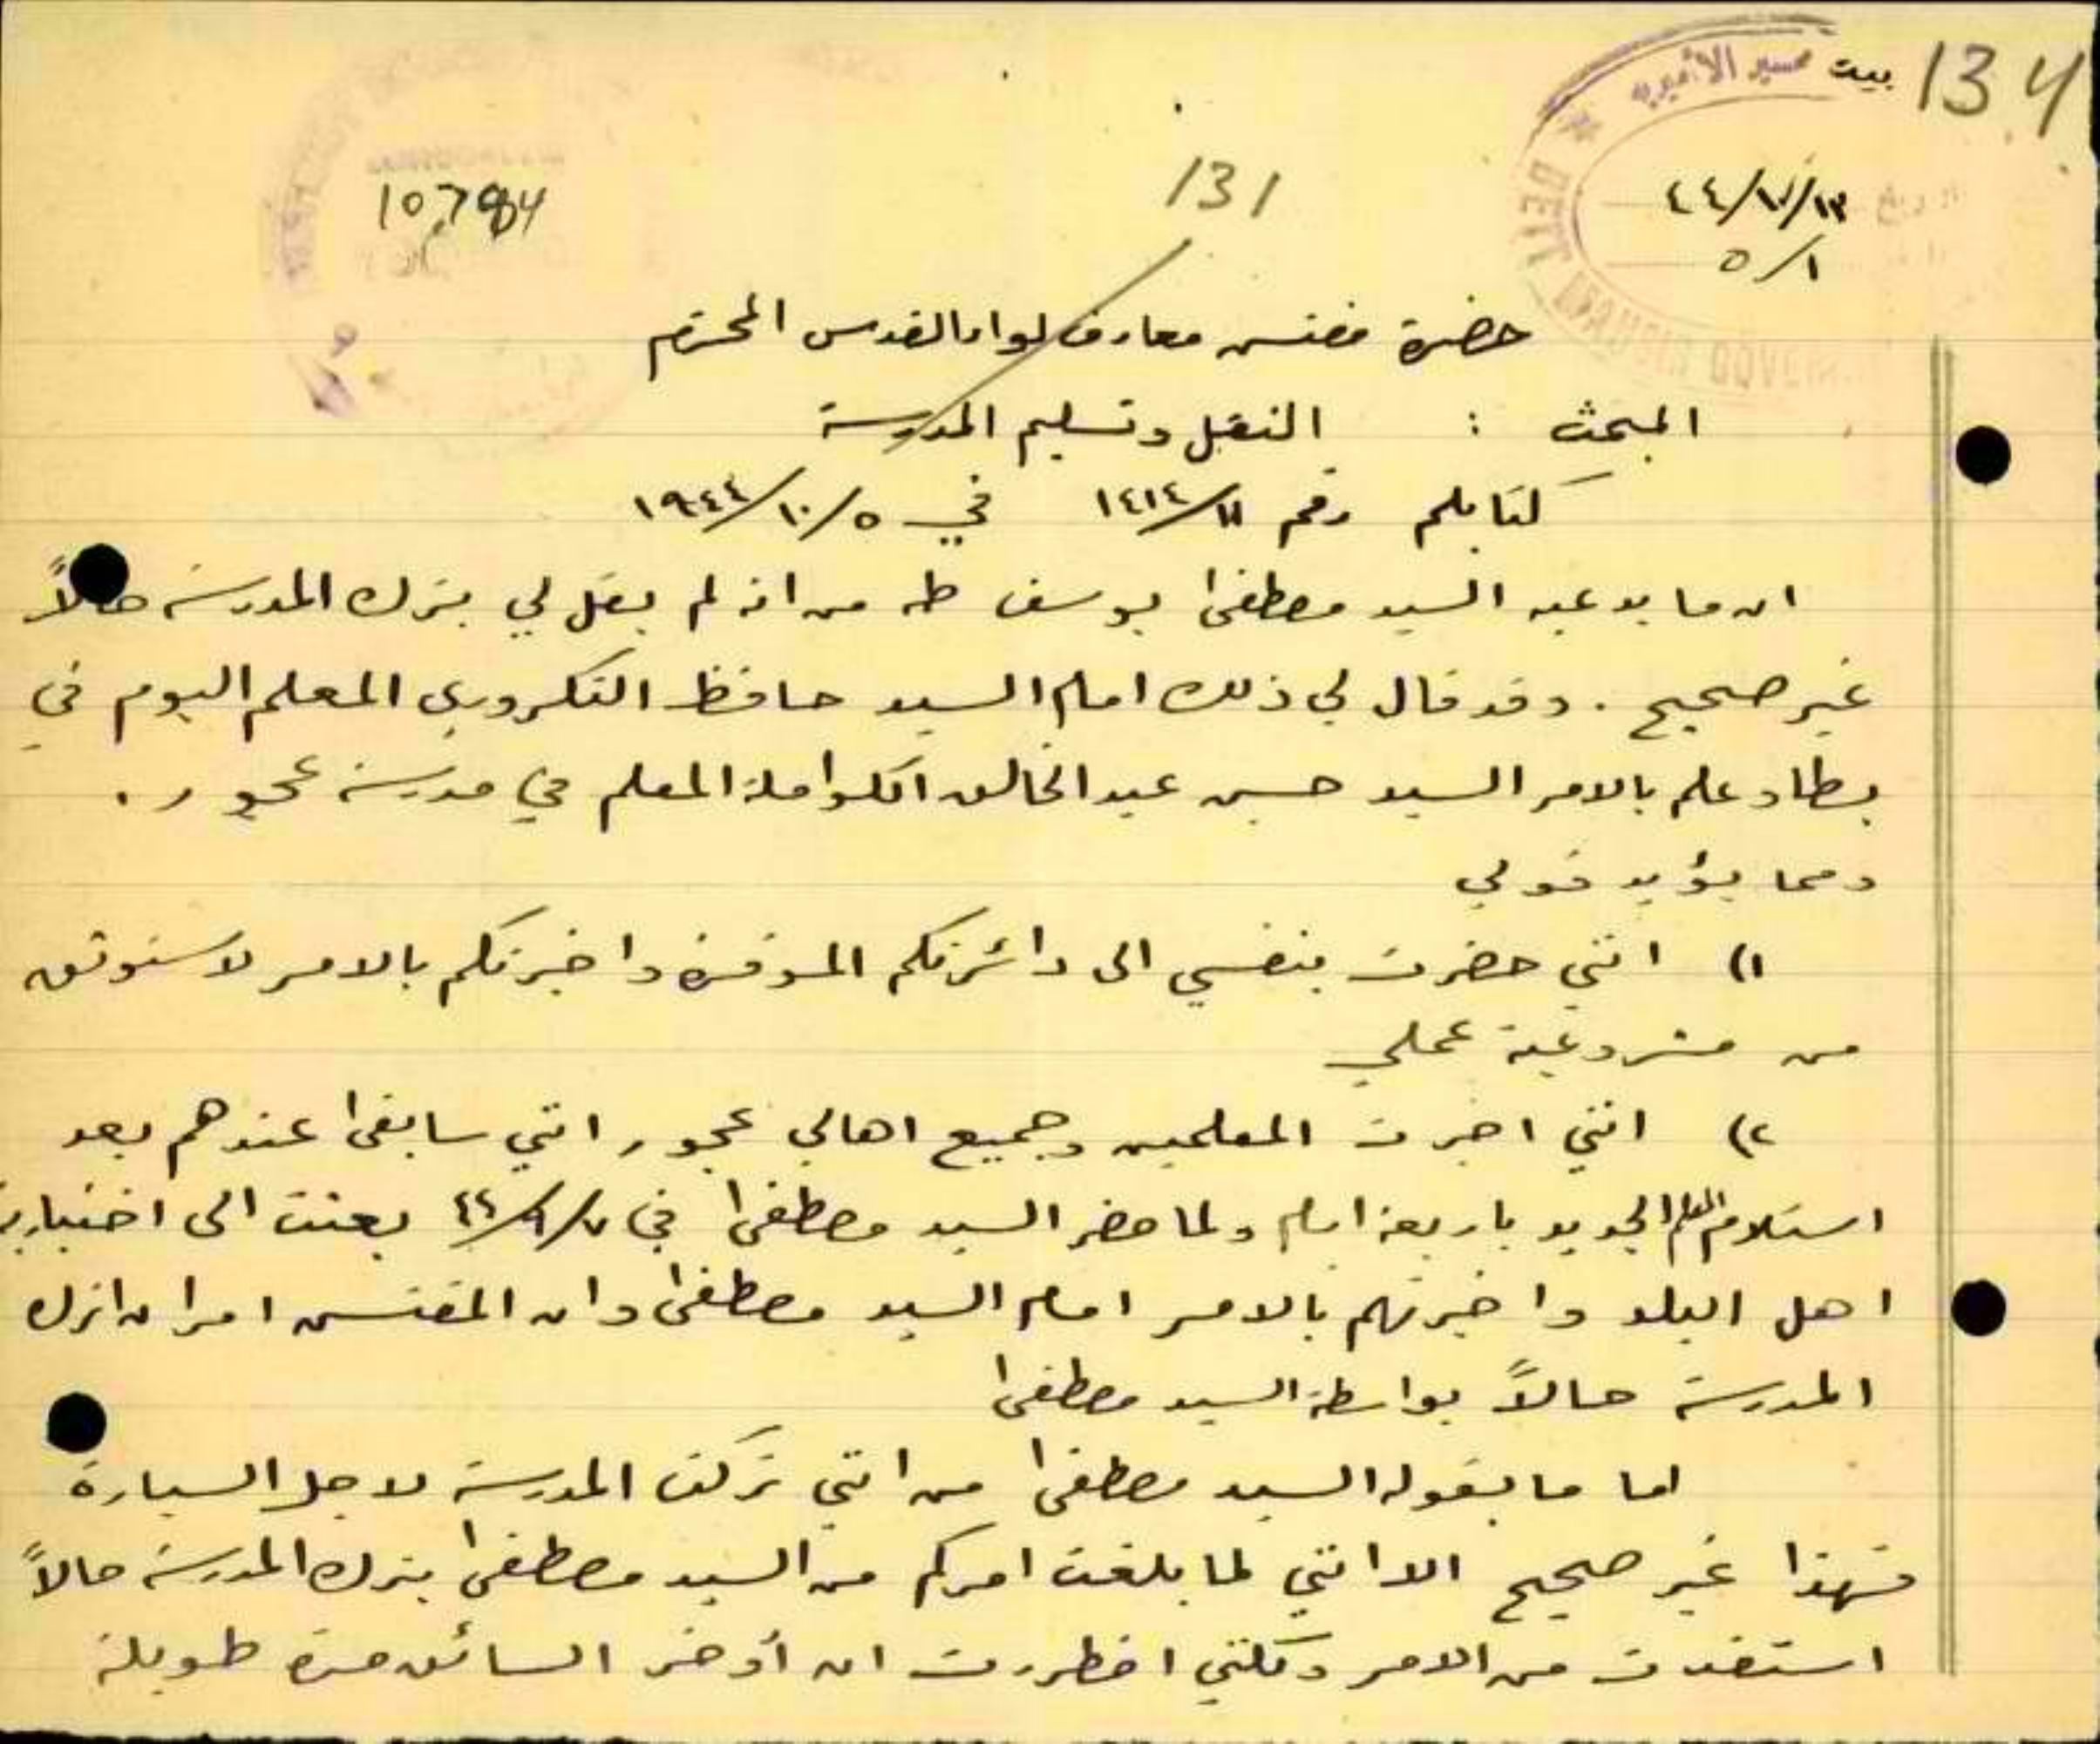 134
بيت
131
10784
٤٤/١٠/١٣
٥/١
حضرة مفتش معارف لواء القدس المحترم
المبحث : النقل وتسليم المدرسة
كتابكم رقم ١٤١٤/١١ في ١٩٤٤/١٠/٥
ان ما يدعيه السيد مصطفى يوسف طه من انه لم يقل لي بترك المدرسة حالاً
غير صحيح . وقد قال لي ذلك امام السيد حافظ التكروري المعلم اليوم في
يطا وعلم بالامر السيد حسن عبد الخالق الكواملة المعلم في مدرسة عجور .
ومما يؤيد قولي
١) انني حضرت بنفسي الى دائرتكم الموقرة واخبرتكم بالامر لاستوثق
من مشروعية عملي
٢) انني اخبرت المعلمين وجميع اهالي عجور انني سابقى عندهم بعد
استلام المعلم الجديد باربعة ايام ولما حضر السيد مصطفى في ٤٤/٩/٧ بعثت الى اختيارية
اهل البلد واخبرتهم بالامر امام السيد مصطفى وان المفتش امر ان اترك
المدرسة حالاً بواسطة السيد مصطفى
اما ما يقوله السيد مصطفى من انني تركت المدرسة لاجل السيارة
فهذا غير صحيح الا انني لما بلغت امركم من السيد مصطفى بترك المدرسة حالاً
استفدت من الامر ولكنني اضطررت ان أؤخر السائق مدة طويلة